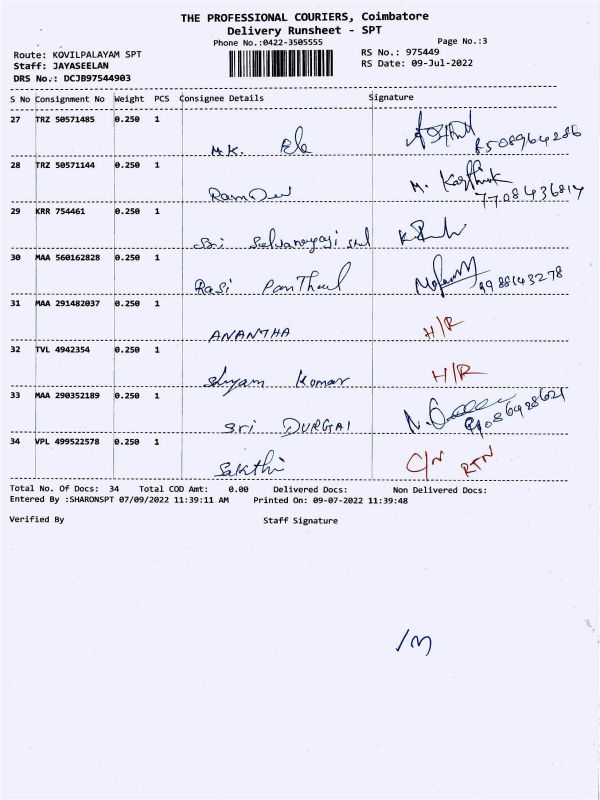 THE PROFESSIONAL COURIERS, Coimbatore
Delivery Runsheet - SPT
Phone No.:0422-3505555 Page No.:3
Route: KOVILPALAYAM SPT RS No.: 975449
Staff: JAYASEELAN RS Date: 09-Jul-2022
DRS No.: DCJB97544903
S No Consignment No Weight PCS Consignee Details Signature
27 TRZ 50571485 0.250 1
M.K. Ele 8508964286
28 TRZ 50571144 0.250 1 M. Karthick
Ram Dev 7708436814
29 KRR 754461 0.250 1
Sri Selvanayagi
30 MAA 560162828 0.250 1
Rasi Panthal 9988143278
31 MAA 291482037 0.250 1
ANANTHA H/R
32 TVL 4942354 0.250 1
Shyam Komar H/R
33 MAA 290352189 0.250 1
Sri DURGAI
34 VPL 499522578 0.250 1
Sakthi C/N RTN
Total No. Of Docs: 34 Total COD Amt: 0.00 Delivered Docs: Non Delivered Docs:
Entered By :SHARONSPT 07/09/2022 11:39:11 AM Printed On: 09-07-2022 11:39:48
Verified By Staff Signature